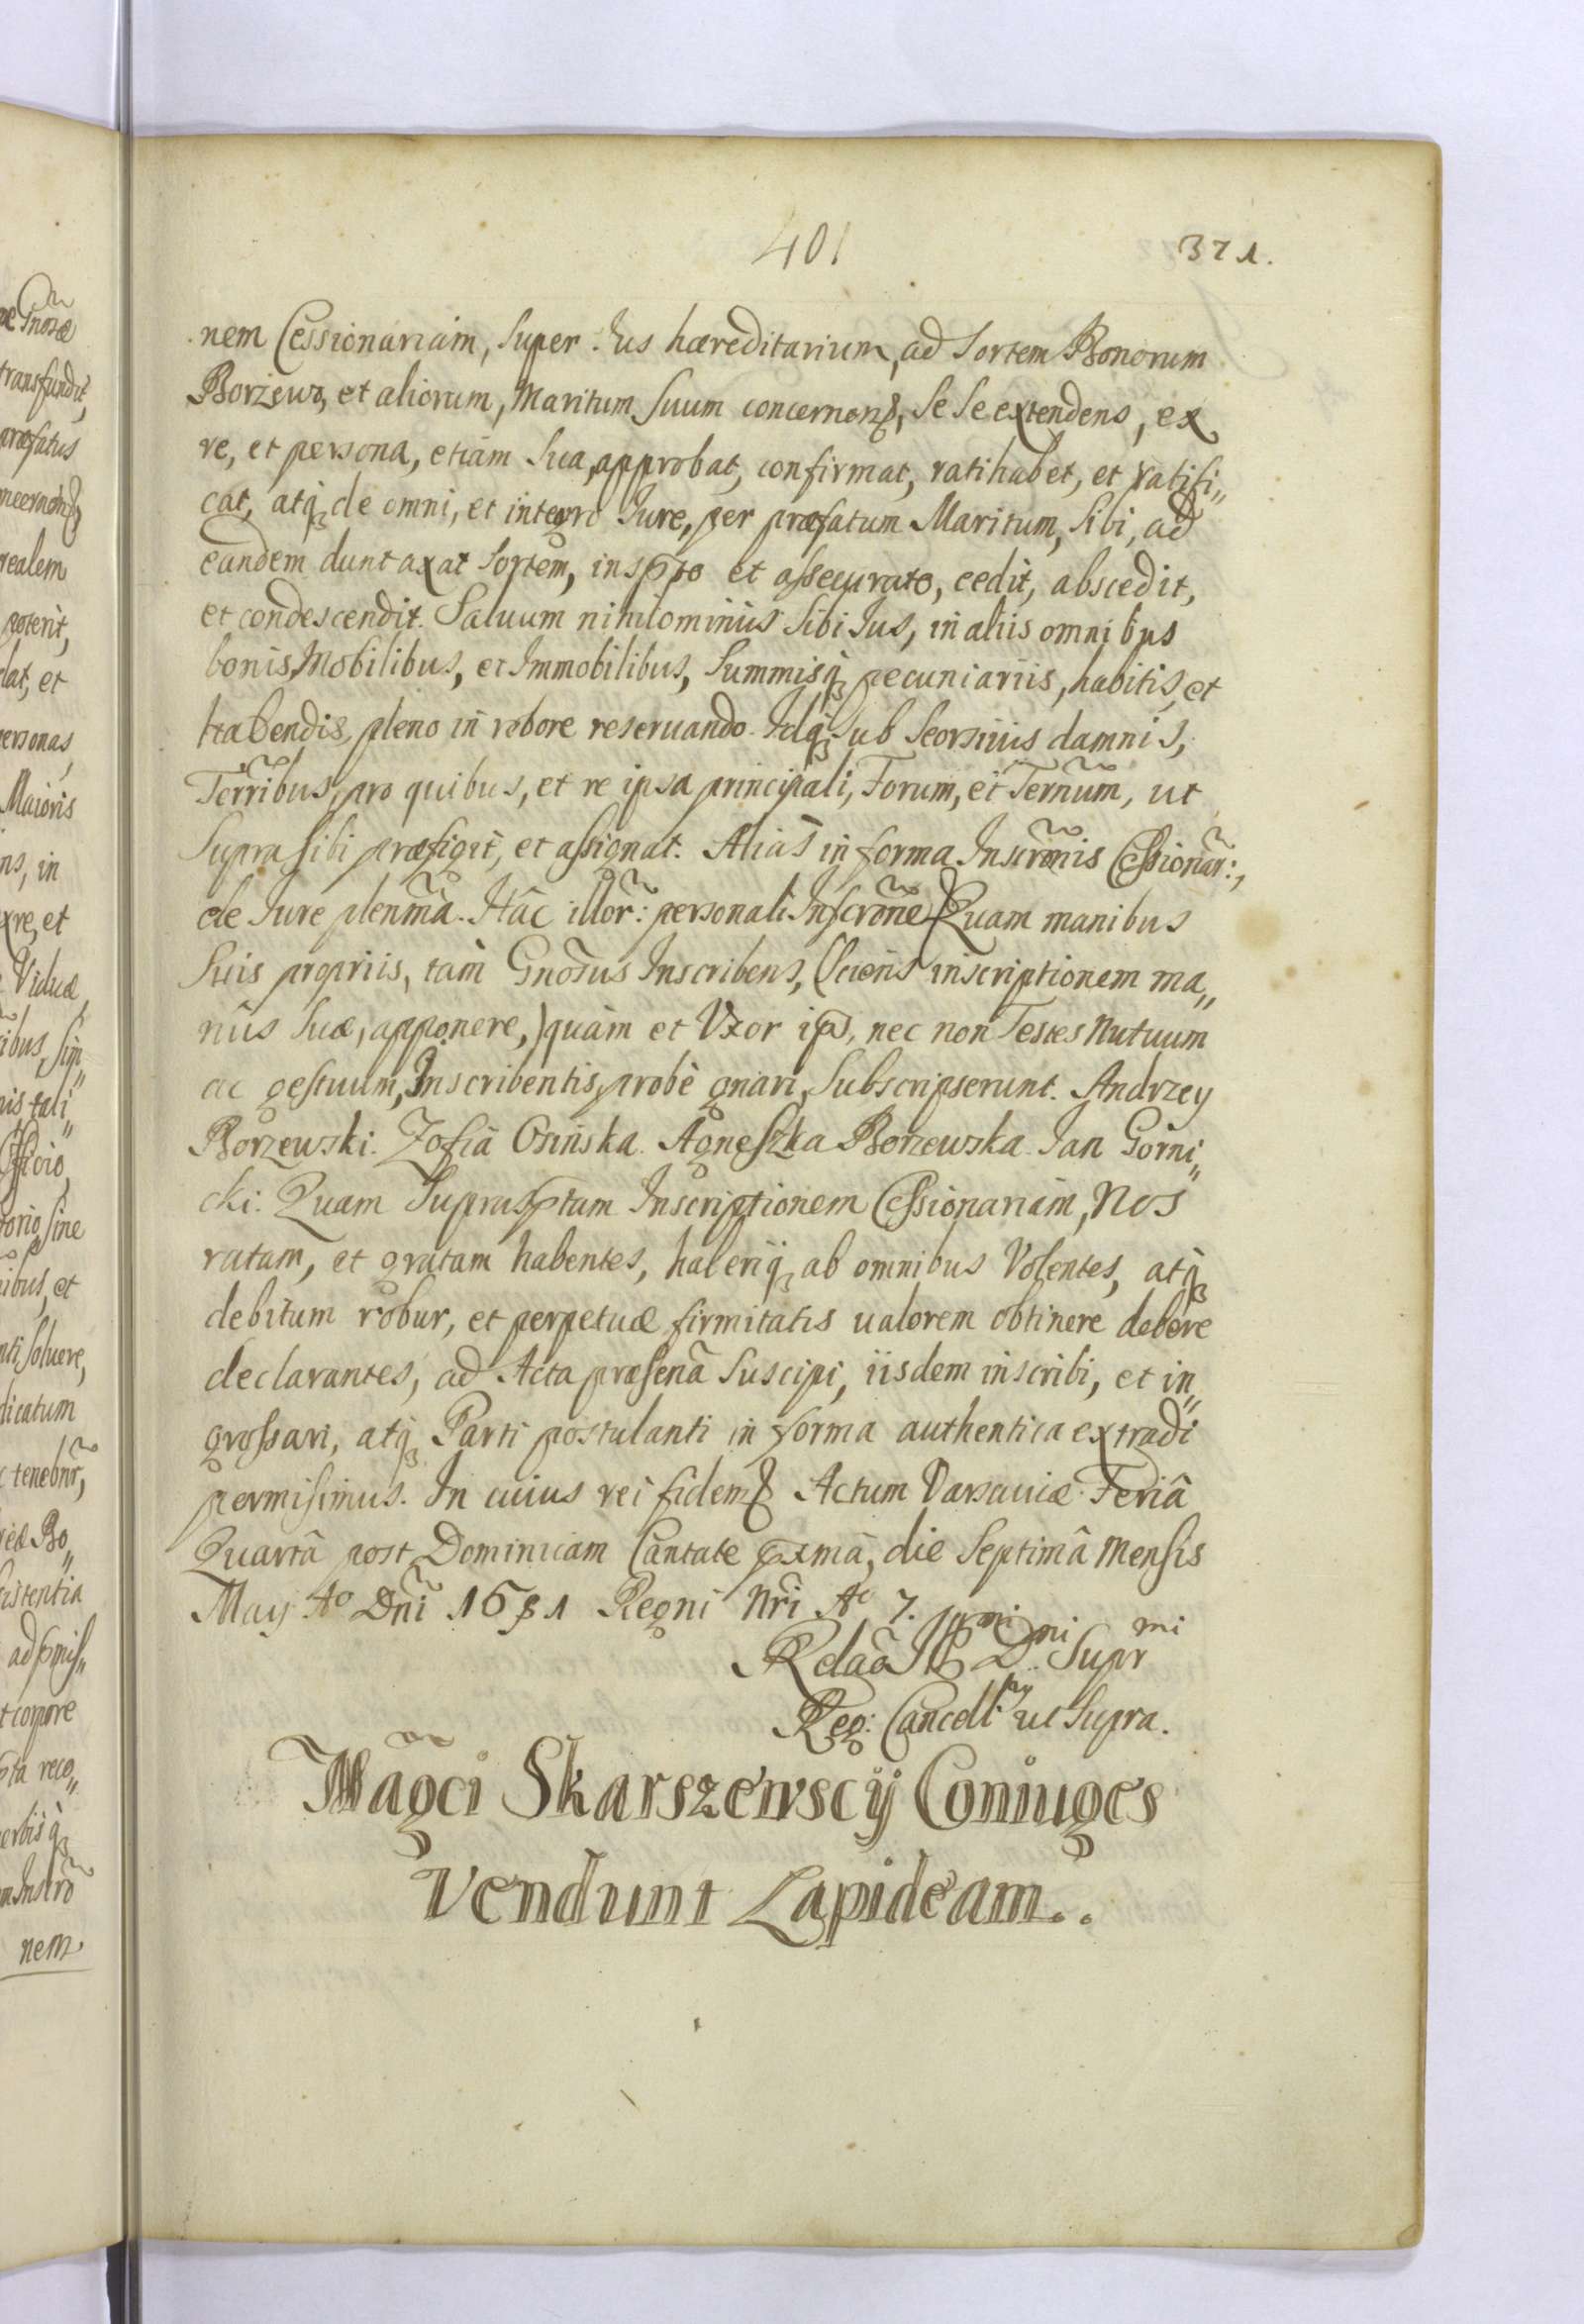 401
371.
nem Cessionariam, Super Ius hæreditarium, ad Sortem Bonorum
Borzewo, et aliorum, Maritum Suum concernen., Se Se extendens, ex
re, et persona, etiam Sua, approbat, confirmat, ratihabet, et ratifi„
cat, atq de omni, et integro Iure, per præfatum Maritum, Sibi, ad
eandem duntaxat Sortem, inspto et assecurato, cedit, abscedit,
et condescendit. Saluum nihilominus Sibi Ius, in aliis omnibus
bonis, Mobilibus, et Immobilibus, Summisq pecuniariis, habitis, et
habendis, pleno in robore reseruando. Idq Sub Seorsiuis damnis,
Terribus, pro quibus, et re ipsa principali, Forum, et Ternum, ut
Supra sibi præfigit, et assignat. Alias in forma Inscrõnis Cessionar:,
de Iure plenmã. Hâc illor: personali Inscrõne Quam manibus
Suis propriis, tàm Gnosus Inscribens, (Sciens inscriptionem ma„
nus Suæ, apponere,) quàm et Vxor ips, nec non Testes Nutuum
ac gestuum, Inscribentis, probè gnari, Subscripserunt. Andrzey
Borzewski. Zofia Osińska. Agneszka Borzewska. Jan Gorni„
cki. Quam Suprasptam Inscriptionem Cessionariam, Nos
ratam, et gratam habentes, haberiq ab omnibus Volentes, atq
debitum robur, et perpetuæ firmitatis ualorem obtinere debere
declarantes, ad Acta præsentia Suscipi, iisdem inscribi, et in„
grossari, atq Parti postulanti in forma authentica extradi
permisimus. In cuius rei fidem Actum Varsauiæ Feriâ
Quartâ post Dominicam Cantate pxmâ, die Septimâ Mensis
May Aº Dñi 1681 Regni Nri Aº 7.
Relaõ Dni Supr mi
Reg: Cancell ut Supra.
Magci Skarszewscÿ Coniuges
Vendunt Lapideam..
Gnosæ
transfundit,
præfatus
realem
poterit,
dat, et
personas,
Maioris
ns, in
xre, et
Viduæ
ibus, Sin„
nis tali„
officio,
torio, sine
ibus, et
nti Soluere,
dicatum
tenebnr,
Bo„
sistentia
t corpore
pta reco„
erbisq
nem